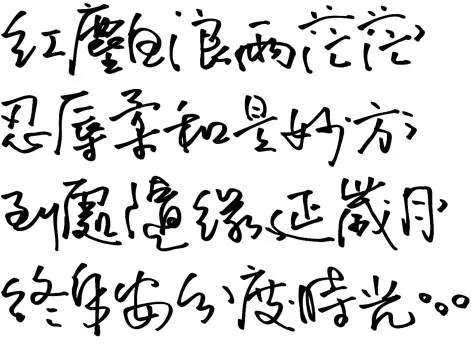 紅塵白浪兩茫茫
忍辱柔和是妙方
到處隨緣延歲月
終身安分度時光。。。